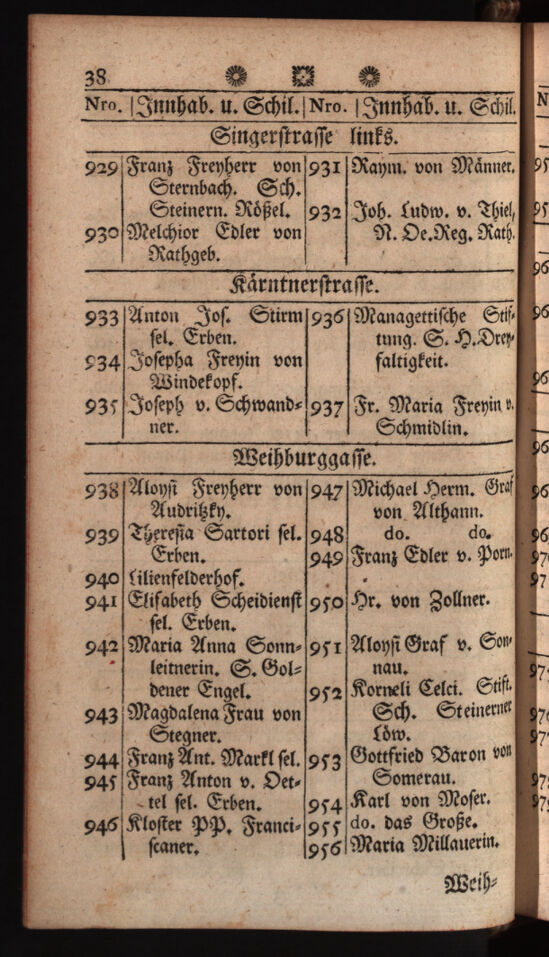 38
Nro. | Innhab. u. Schil. | Nro. | Innhab. u. Schil.
Singerstrasse links.
929 Franz Freyherr von
Sternbach. Sch.
Steinern. Rößel.
930 Melchior Edler von
Rathgeb.
931 Raym. von Männer.
932 Joh. Ludw. v. Thiel,
N. Oe.Reg. Rath.
Kärntnerstrasse.
933 Anton Jos. Stirm
sel. Erben.
934 Josepha Freyin von
Windekopf.
935 Joseph v. Schwand=
ner.
936 Managettische Stif=
tung. S. H.Drey=
faltigkeit.
937 Fr. Maria Freyin v.
Schmidlin.
Weihburggasse.
938 Aloysi Freyherr von
Audritzky.
939 Theresia Sartori sel.
Erben.
940 Lilienfelderhof.
941 Elisabeth Scheidienst
sel. Erben.
942 Maria Anna Sonn=
leitnerin. S. Gol=
dener Engel.
943 Magdalena Frau von
Stegner.
944 Franz Ant. Markl sel.
945 Franz Anton v. Oet=
tel sel. Erben.
946 Kloster PP. Franci=
scaner.
947 Michael Herm. Graf
von Althann.
948 do. do.
949 Franz Edler v. Porn.
950 Hr. von Zollner.
951 Aloysi Graf v. Son=
nau.
952 Korneli Celci. Stift.
Sch. Steinerner
Löw.
953 Gottfried Baron von
Somerau.
954 Karl von Moser.
955 do. das Große.
956 Maria Millauerin.
Weih=